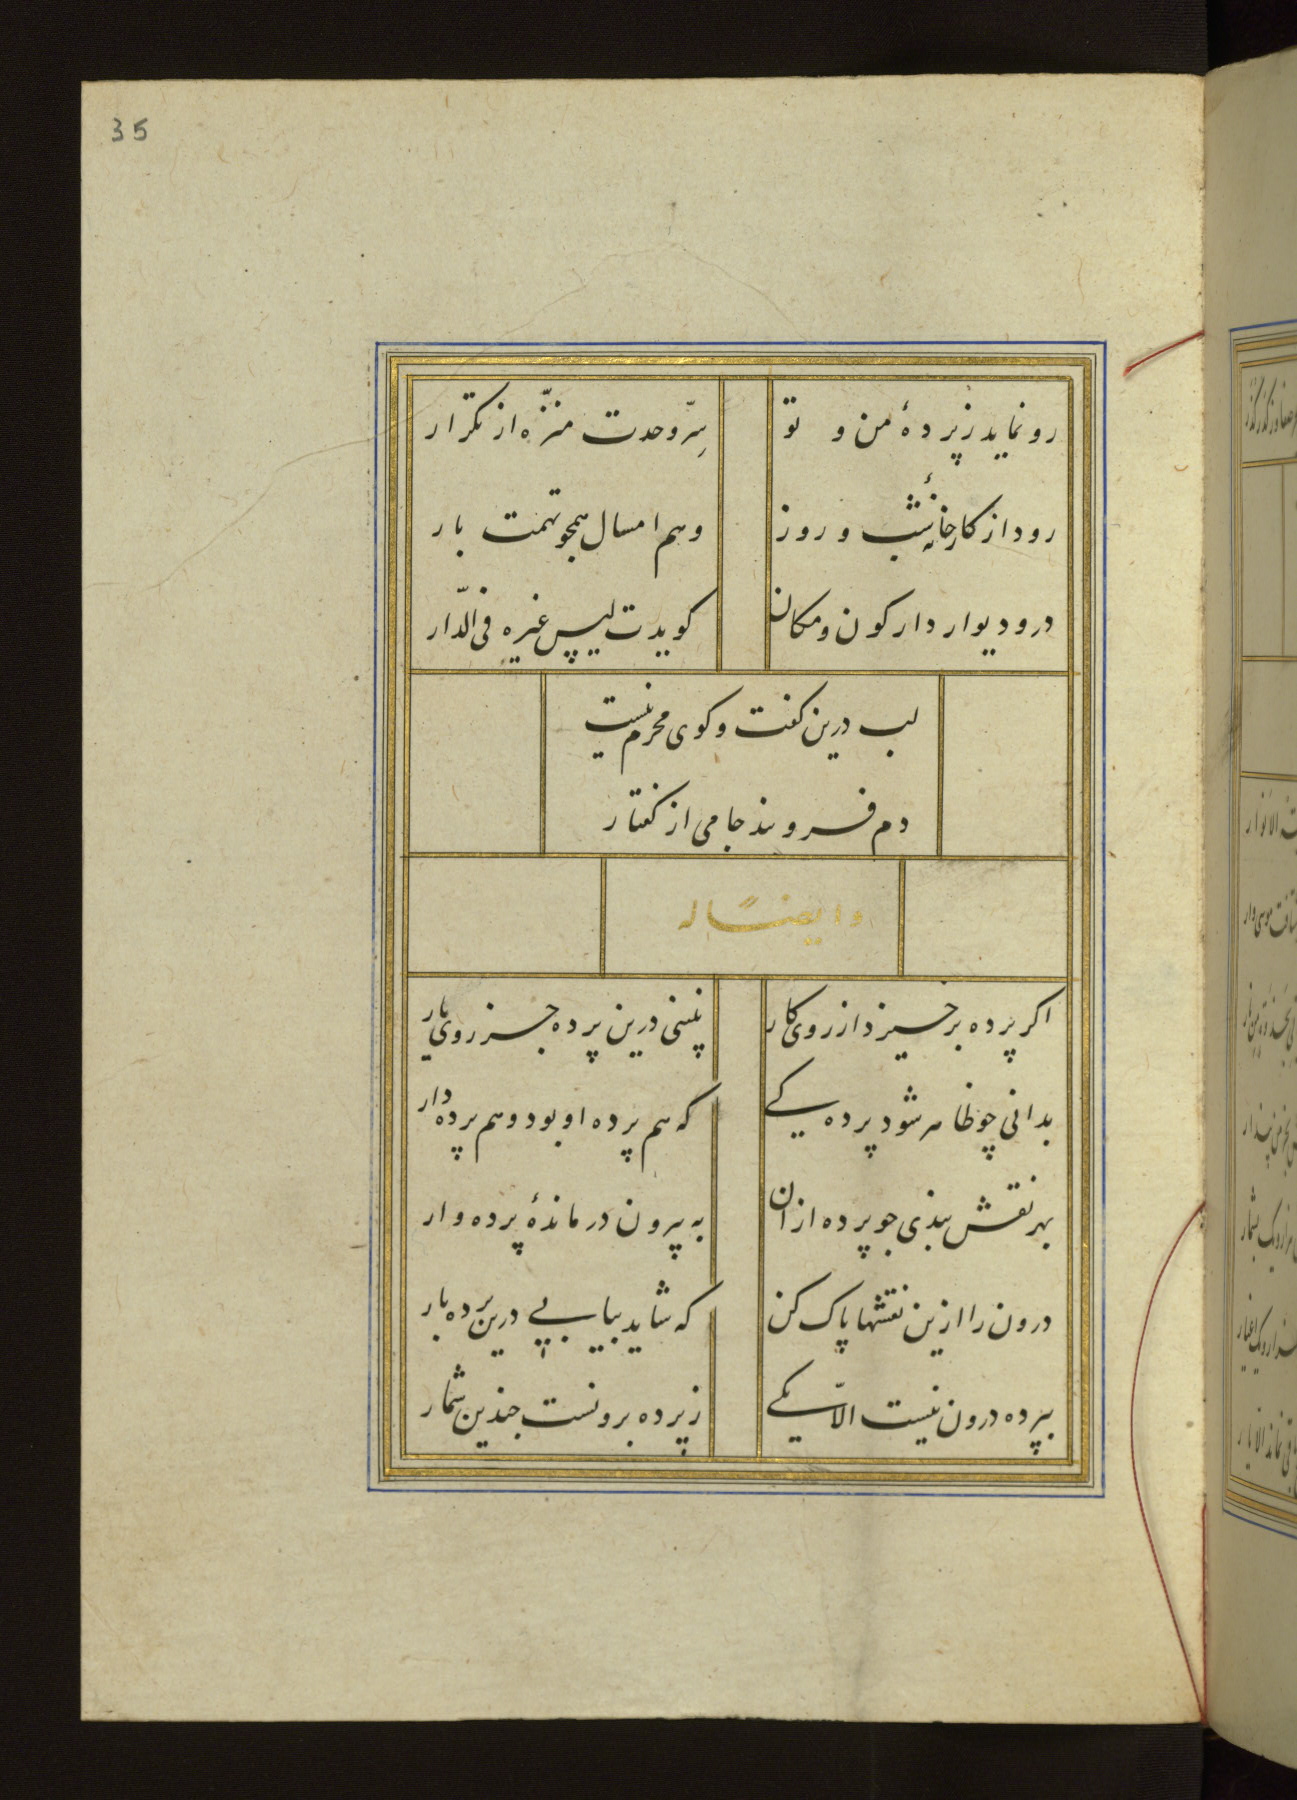 35
رو نماید ز پردهٔ من و تو
سِرّ وحدت منزّه از تکرار
رود از کارخانهٔ شب و روز
وهم امسال همچو تهمت پار
در و دیوار دار کون و مکان
کویدت لیس غیره فی الدّار
لب درین کفت و کوی محرم نیست
دم فرو بند جامی از کفتار
و ایضاً له
اکر پرده برخیزد از روی کار
نبینی درین پرده جز روی یار
بدانی چو ظاهر شود پردکی
که هم پرده او بود و هم پرده دار
بهر نقش بندی چو پرده از ان
به بیرون در ماندهٔ پرده وار
درون را ازین نقشها پاک کن
که شاید بیابی درین پرده بار
بپرده درون نیست الاّ یکی
ز پرده برونست چندین شمار